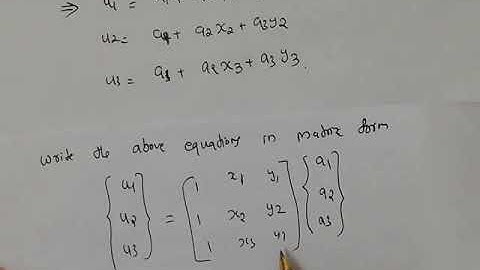 ⇒ u1 =
u2 = a1 + a2 x2 + a3 y2
u3 = a1 + a2 x3 + a3 y3.
write the above equations in matrix form
{u1 u2 u3} = [1 x1 y1
1 x2 y2
1 x3 y3] {a1 a2 a3}